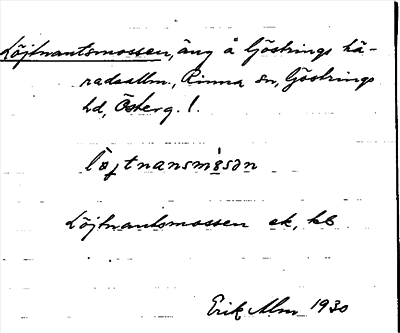 Löjtnantsmossen, äng å Göstrings hä-
radsallm., Rinna sn, Göstrings
hd, Österg. l.
löjtnansmo̍sən
Löjtnantsmossen ek, kb
Erik Alm 1930